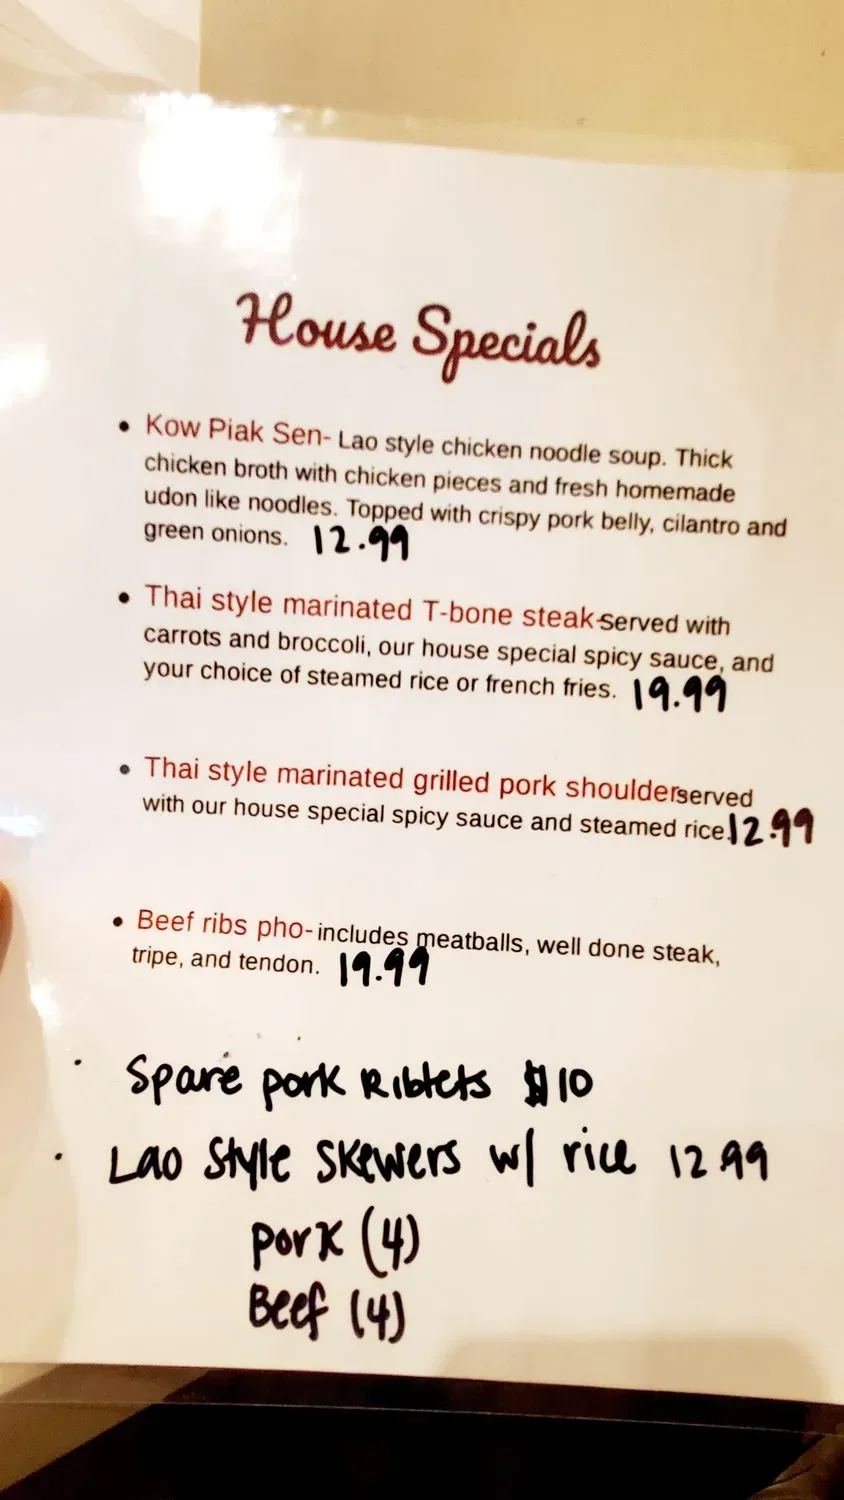 House Specials
• Kow Piak Sen- Lao style chicken noodle soup. Thick
chicken broth with chicken pieces and fresh homemade
udon like noodles. Topped with crispy pork belly, cilantro and
green onions. 12.99
• Thai style marinated T-bone steak-served with
carrots and broccoli, our house special spicy sauce, and
your choice of steamed rice or french fries. 19.99
• Thai style marinated grilled pork shoulder served
with our house special spicy sauce and steamed rice. 12.99
• Beef ribs pho- includes meatballs, well done steak,
tripe, and tendon. 19.99
• Spare pork Riblets $10
• Lao Style Skewers w/ rice 12.99
Pork (4)
Beef (4)